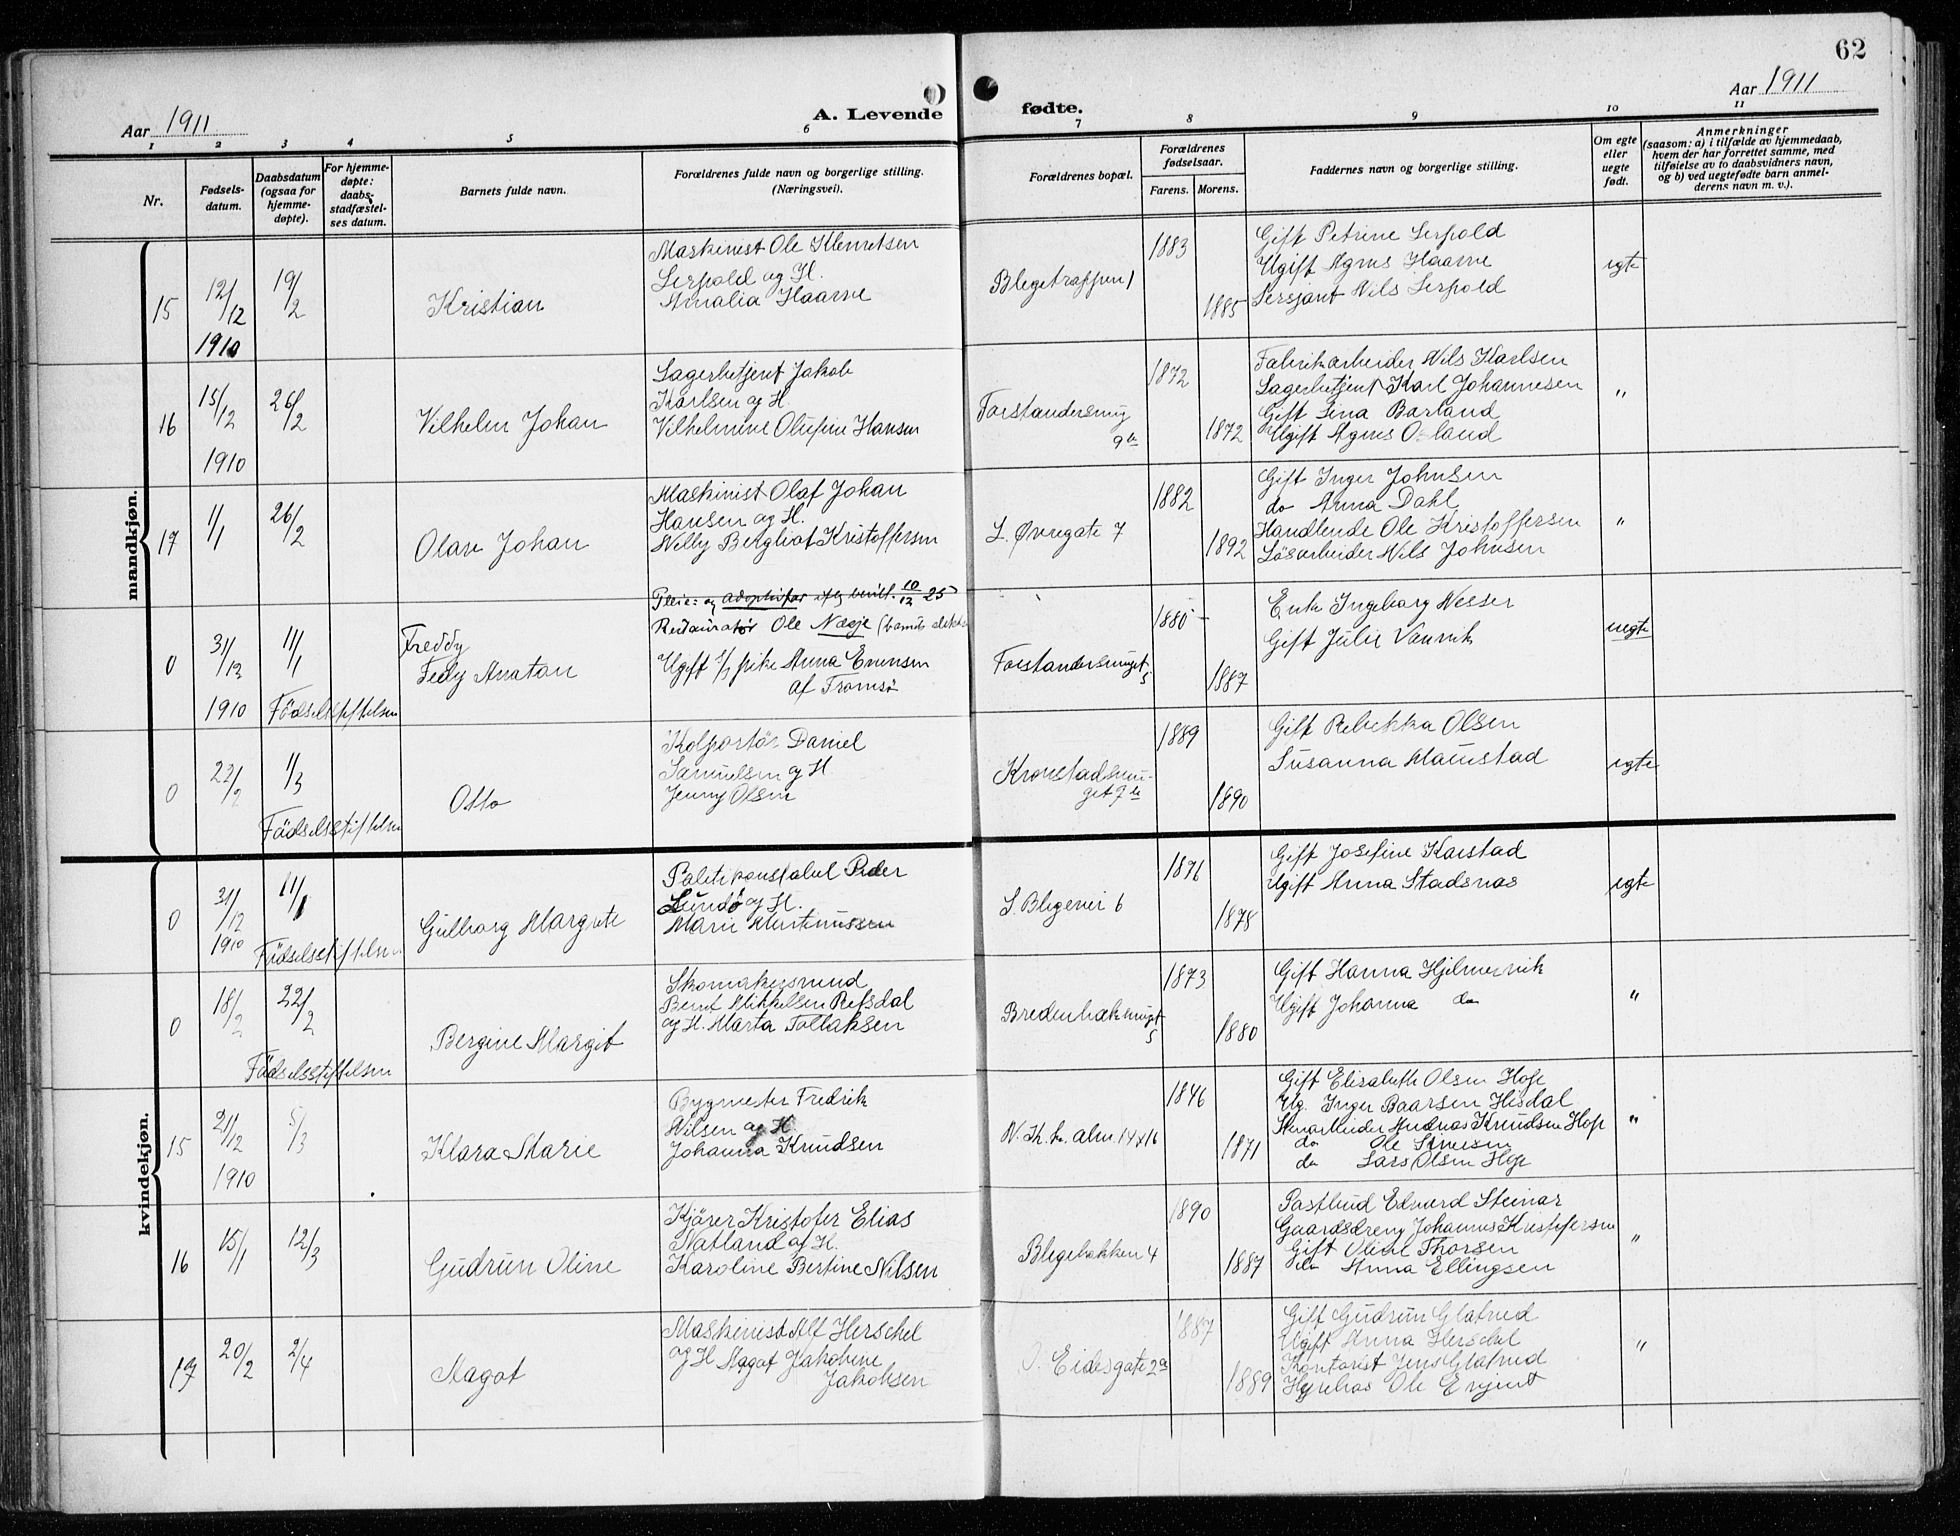 62
Aar 1911
A. Levende
fødte.
Aar 1911
1 2 3 4 5 6 7 8 9 10 11
Nr.
Fødsels-
datum.
Daabsdatum
(ogsaa for
hjemme-
døpte).
For hjemme-
døpte:
daabs-
stadfæstel-
ses datum.
Barnets fulde navn.
Forældrenes fulde navn og borgerlige stilling.
(Næringsvei).
Forældrenes bopæl.
Forældrenes
fødselsaar.
Farens. Morens.
Faddernes navn og borgerlige stilling.
Om egte
eller
uegte
født.
Anmerkninger
(saasom: a) i tilfælde av hjemmedaab,
hvem der har forrettet samme, med
tilføielse av to daabsvidners navn,
og b) ved uegtefødte barn anmel-
derens navn m. v.).
mandkjøn.
15
12/12
1910
19/2
Kristian
Maskinist Ole Klemetsen
Serpold og H.
Amalia Haarve
Blegetrappen 1
1883
1885
Gift Petrine Serpold
Ugift Agnes Haarve
Sersjant Nils Serpold
egte
16
15/12
1910
26/2
Vilhelm Johan
Lagerbetjent Jakob
Karlsen og H.
Vilhelmine Olufine Hansen
Forstandersmug
9b
1872
1872
Fabrikarbeider Nils Karlsen
Lagerbetjent Karl Johannesen
Gift Lina Barland
Ugift Agnes
"
17
1/1
26/2
Olav Johan
Maskinist Olaf Johan
Hansen og H.
Nelly Bergliot Kristoffersen
L. Øvregate 7
1882
1892
Gift Inger Johnsen
do Anna Dahl
Handlende Ole Kristoffersen
Løsarbeider Nils Johnsen
"
0
31/12
1910
11/1
Fødselsstiftelsen
Freddy
Fedy Anatan
Pleie- og adoptivfar iflg bevilt. 10/12 25
Restauratør Ole Næsje
Ugift pike Anna Evensen
af Tromsø
Forstandersmuget
5
1880
1887
Enke Ingeborg Nesser
Gift Julie Vanvik
uegte
0
22/2
1/3
Fødselsstiftelsen
Otto
Kolportør Daniel
Samuelsen og H
Jenny Olsen
Kronstadsmu-
get 9b
1889
1890
Gift Rebekka Olsen
Susanna Maustad
egte
kvindekjøn.
0
31/12
1910
11/1
Fødselsstiftelsen
Gulborg Margrete
Politikonstabel Peder
Lundø og H.
Marie Martinussen
S. Blegevei 6
1876
1878
Gift Josefine Karstad
Ugift Anna Stadsnas
egte
0
18/2
22/2
Fødselsstiftelsen
Bergine Margit
Skomakersvend
Bernt Mikkelsen Refsdal
og H. Marta Tollaksen
Bredenbæksmuget
5
1873
1880
Gift Hanna Hjelmervik
Ugift Johanna do
"
15
21/12
1910
5/3
Klara Marie
Bygmester Fredrik
Nilsen og H.
Johanna Knudsen
N. K. k. alm. 14 x 16
1846
1871
Gift Elisabeth Olsen Hop
Ug. Inger Baarsen Hisdal
Stenarbeider Andreas Knudsen Hop
do Ole
do Lars Olsen Hop
"
16
15/1
12/3
Gudrun Oline
Kjører Kristofer Elias
Natland og H.
Karoline Bertine Nilsen
Blegebakken 4
1890
1887
Postbud Edvard Steinar
Gaardsdreng Johannes Kristoffersen
Gift Oline Thorsen
do Anna Ellingsen
"
17
20/2
2/4
Magot
Maskinist Alf Herschel
og H Magot Jakobine
Jakobsen
Eidesgate 2a
1887
1889
Gift Gudrun Glatved
Ugift Anna Herschel
Kontorist Jens Glatved
Ole
"